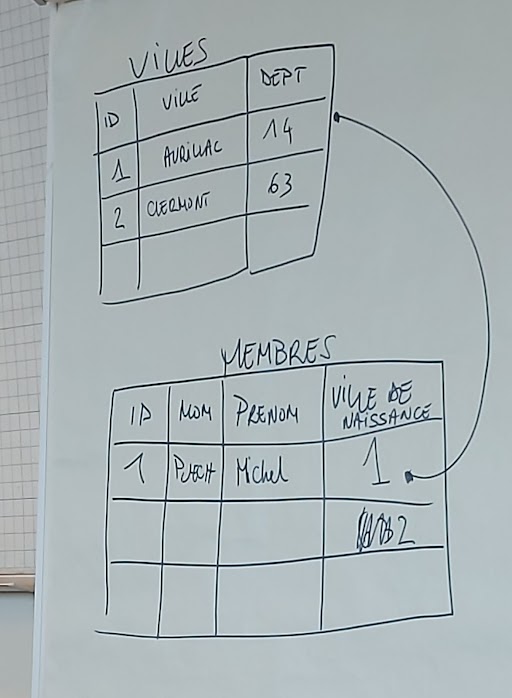 VILLES
ID VILLE DEPT
1 AURILLAC 14
2 CLERMONT 63
MEMBRES
ID NOM PRENOM VILLE DE
NAISSANCE
1 PUECH Michel 1
2